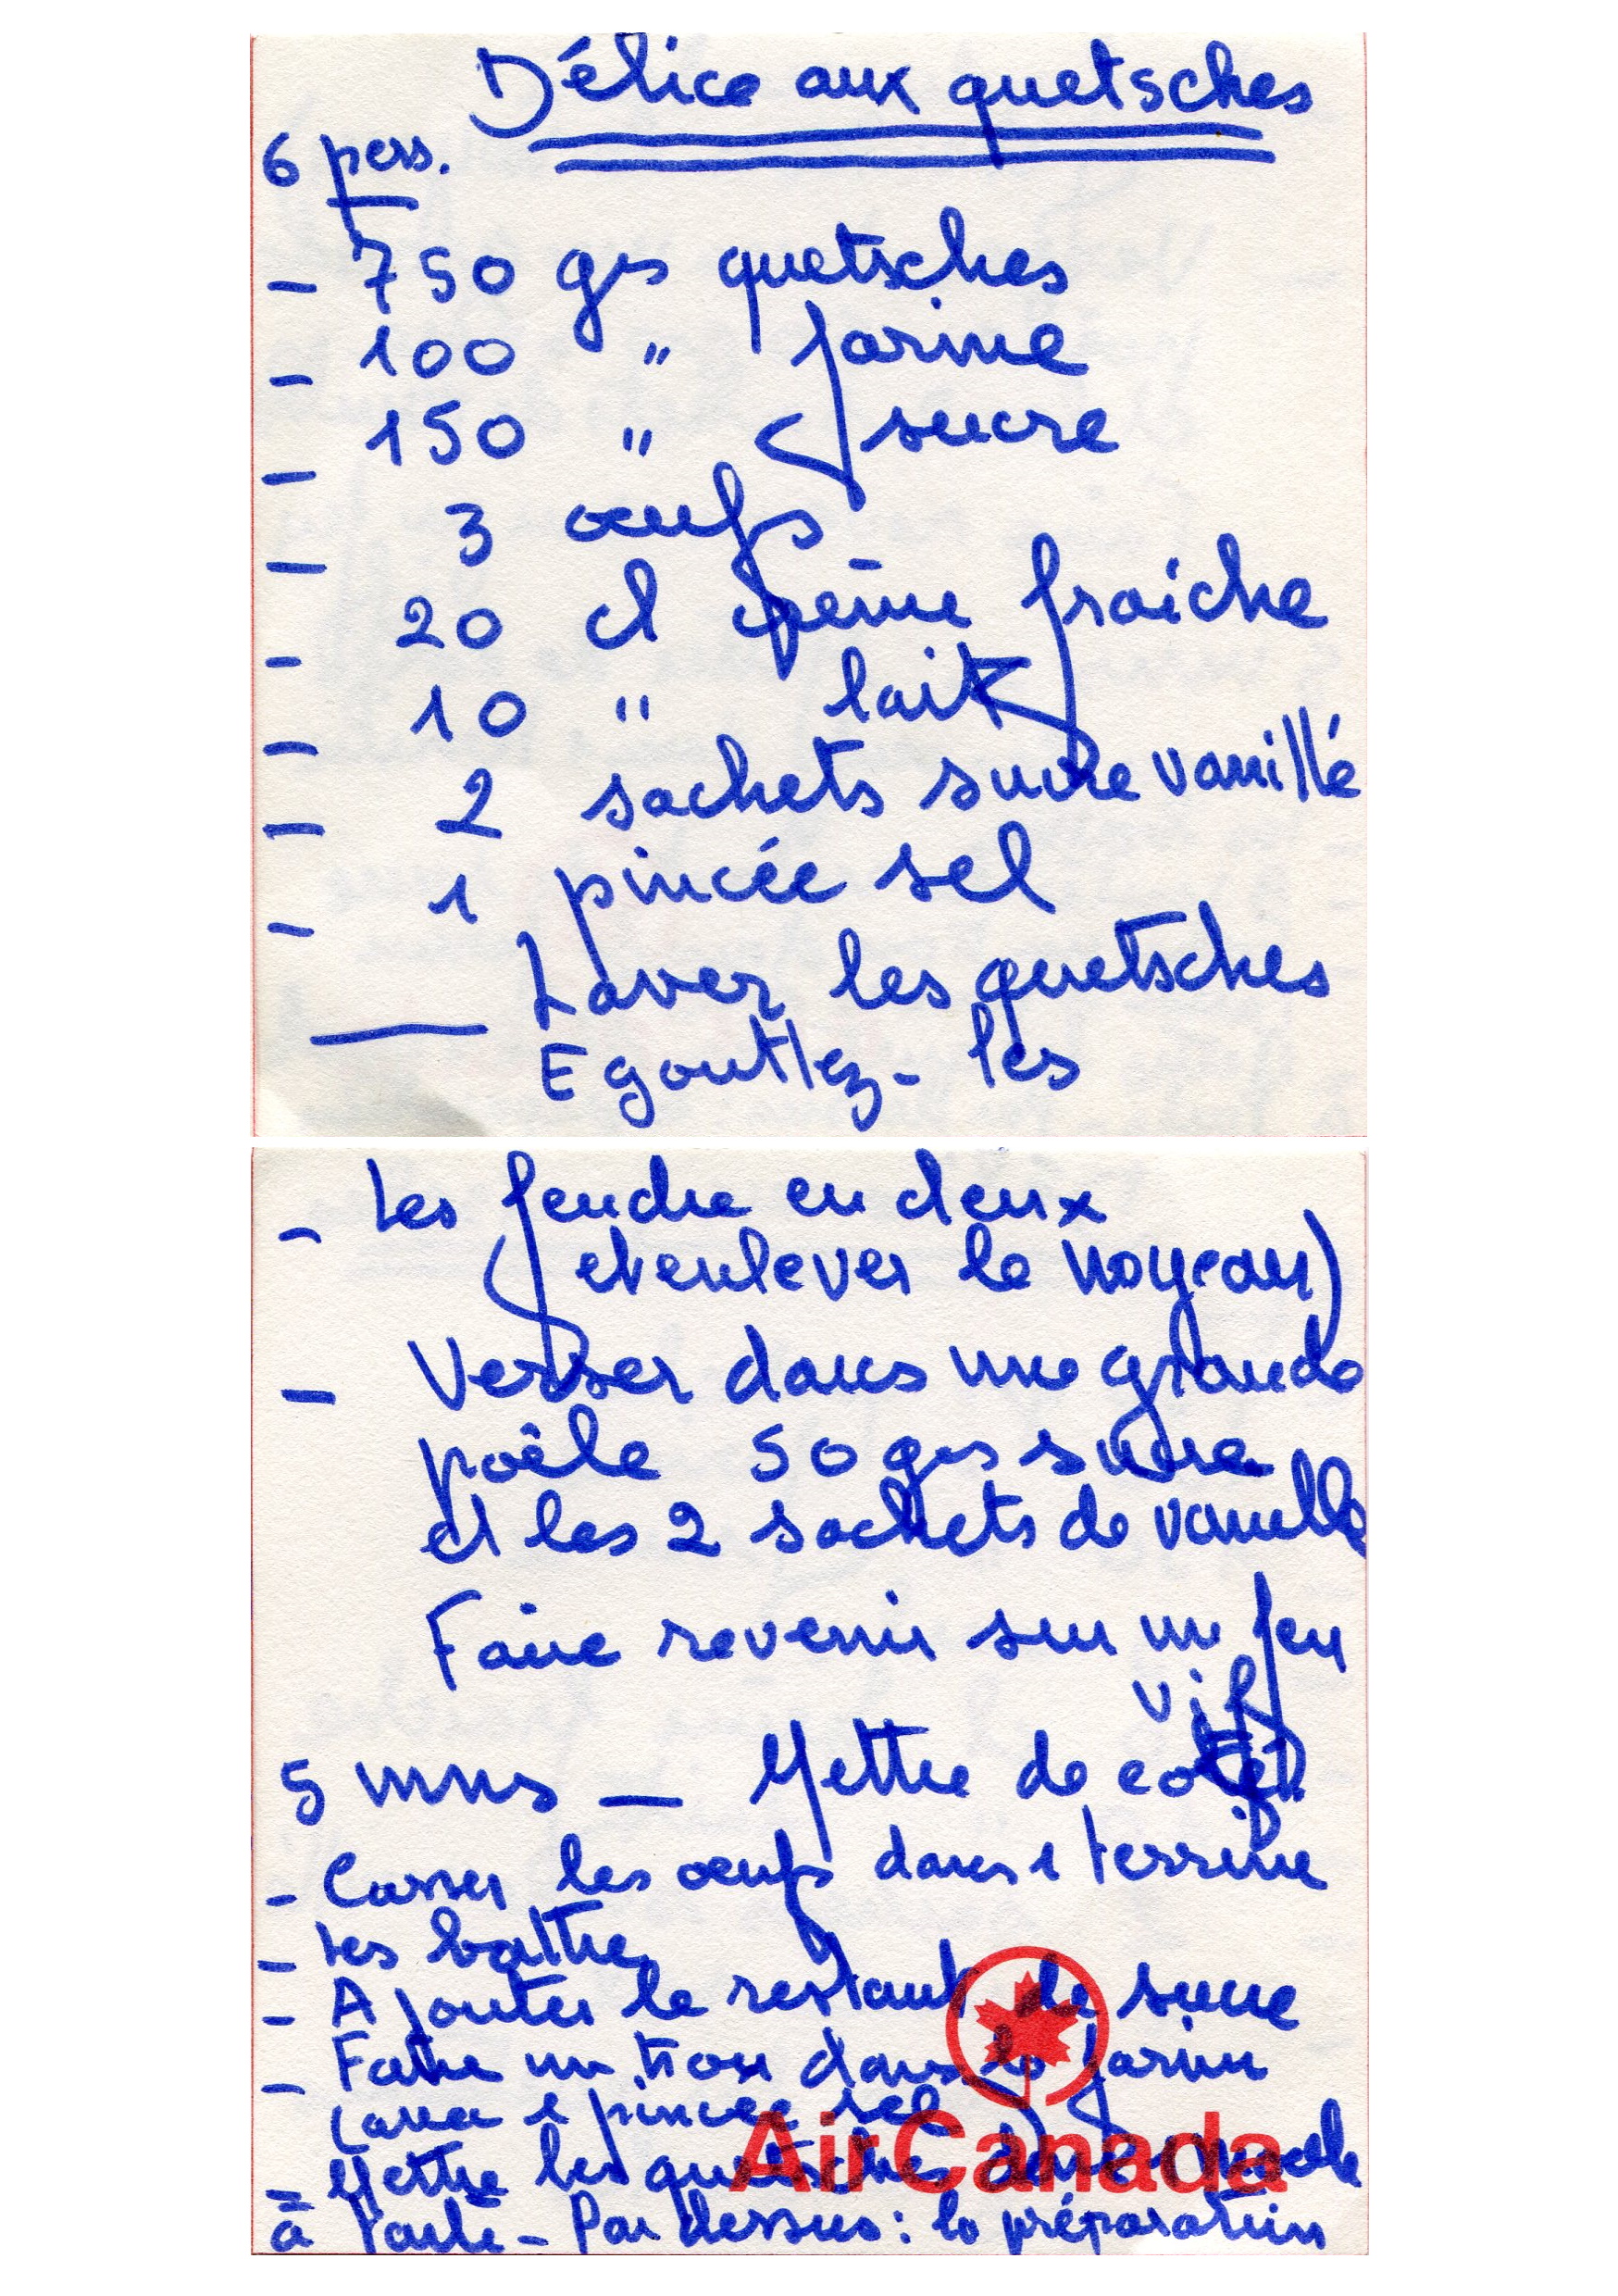 Délice aux quetsches
6 pers.
- 750 grs quetsches
- 100 " farine
- 150 " sucre
- 3 oeufs
- 20 cl crème fraiche
- 10 " lait
- 2 sachets sucre vanillé
- 1 pincée sel
— Laver les quetsches
Egouttez-les
- Les fendre en deux
(et enlever le noyau)
- Verser dans une grande
poêle 50 grs sucre
et les 2 sachets de vanille
Faire revenir sur un feu
vif
5 mns — Mettre de coté
- Casser les oeufs dans 1 terrine
- Les battre
- Ajouter le restant de sucre
- Faire un trou dans la farine
(avec 1 pincée sel
- Mettre les quetsches dans 1 moule
à tarte - Par dessus : la préparation
Air Canada